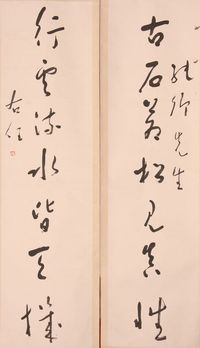 古石蒼松見真性
卿先生
行雲流水皆天機
右任